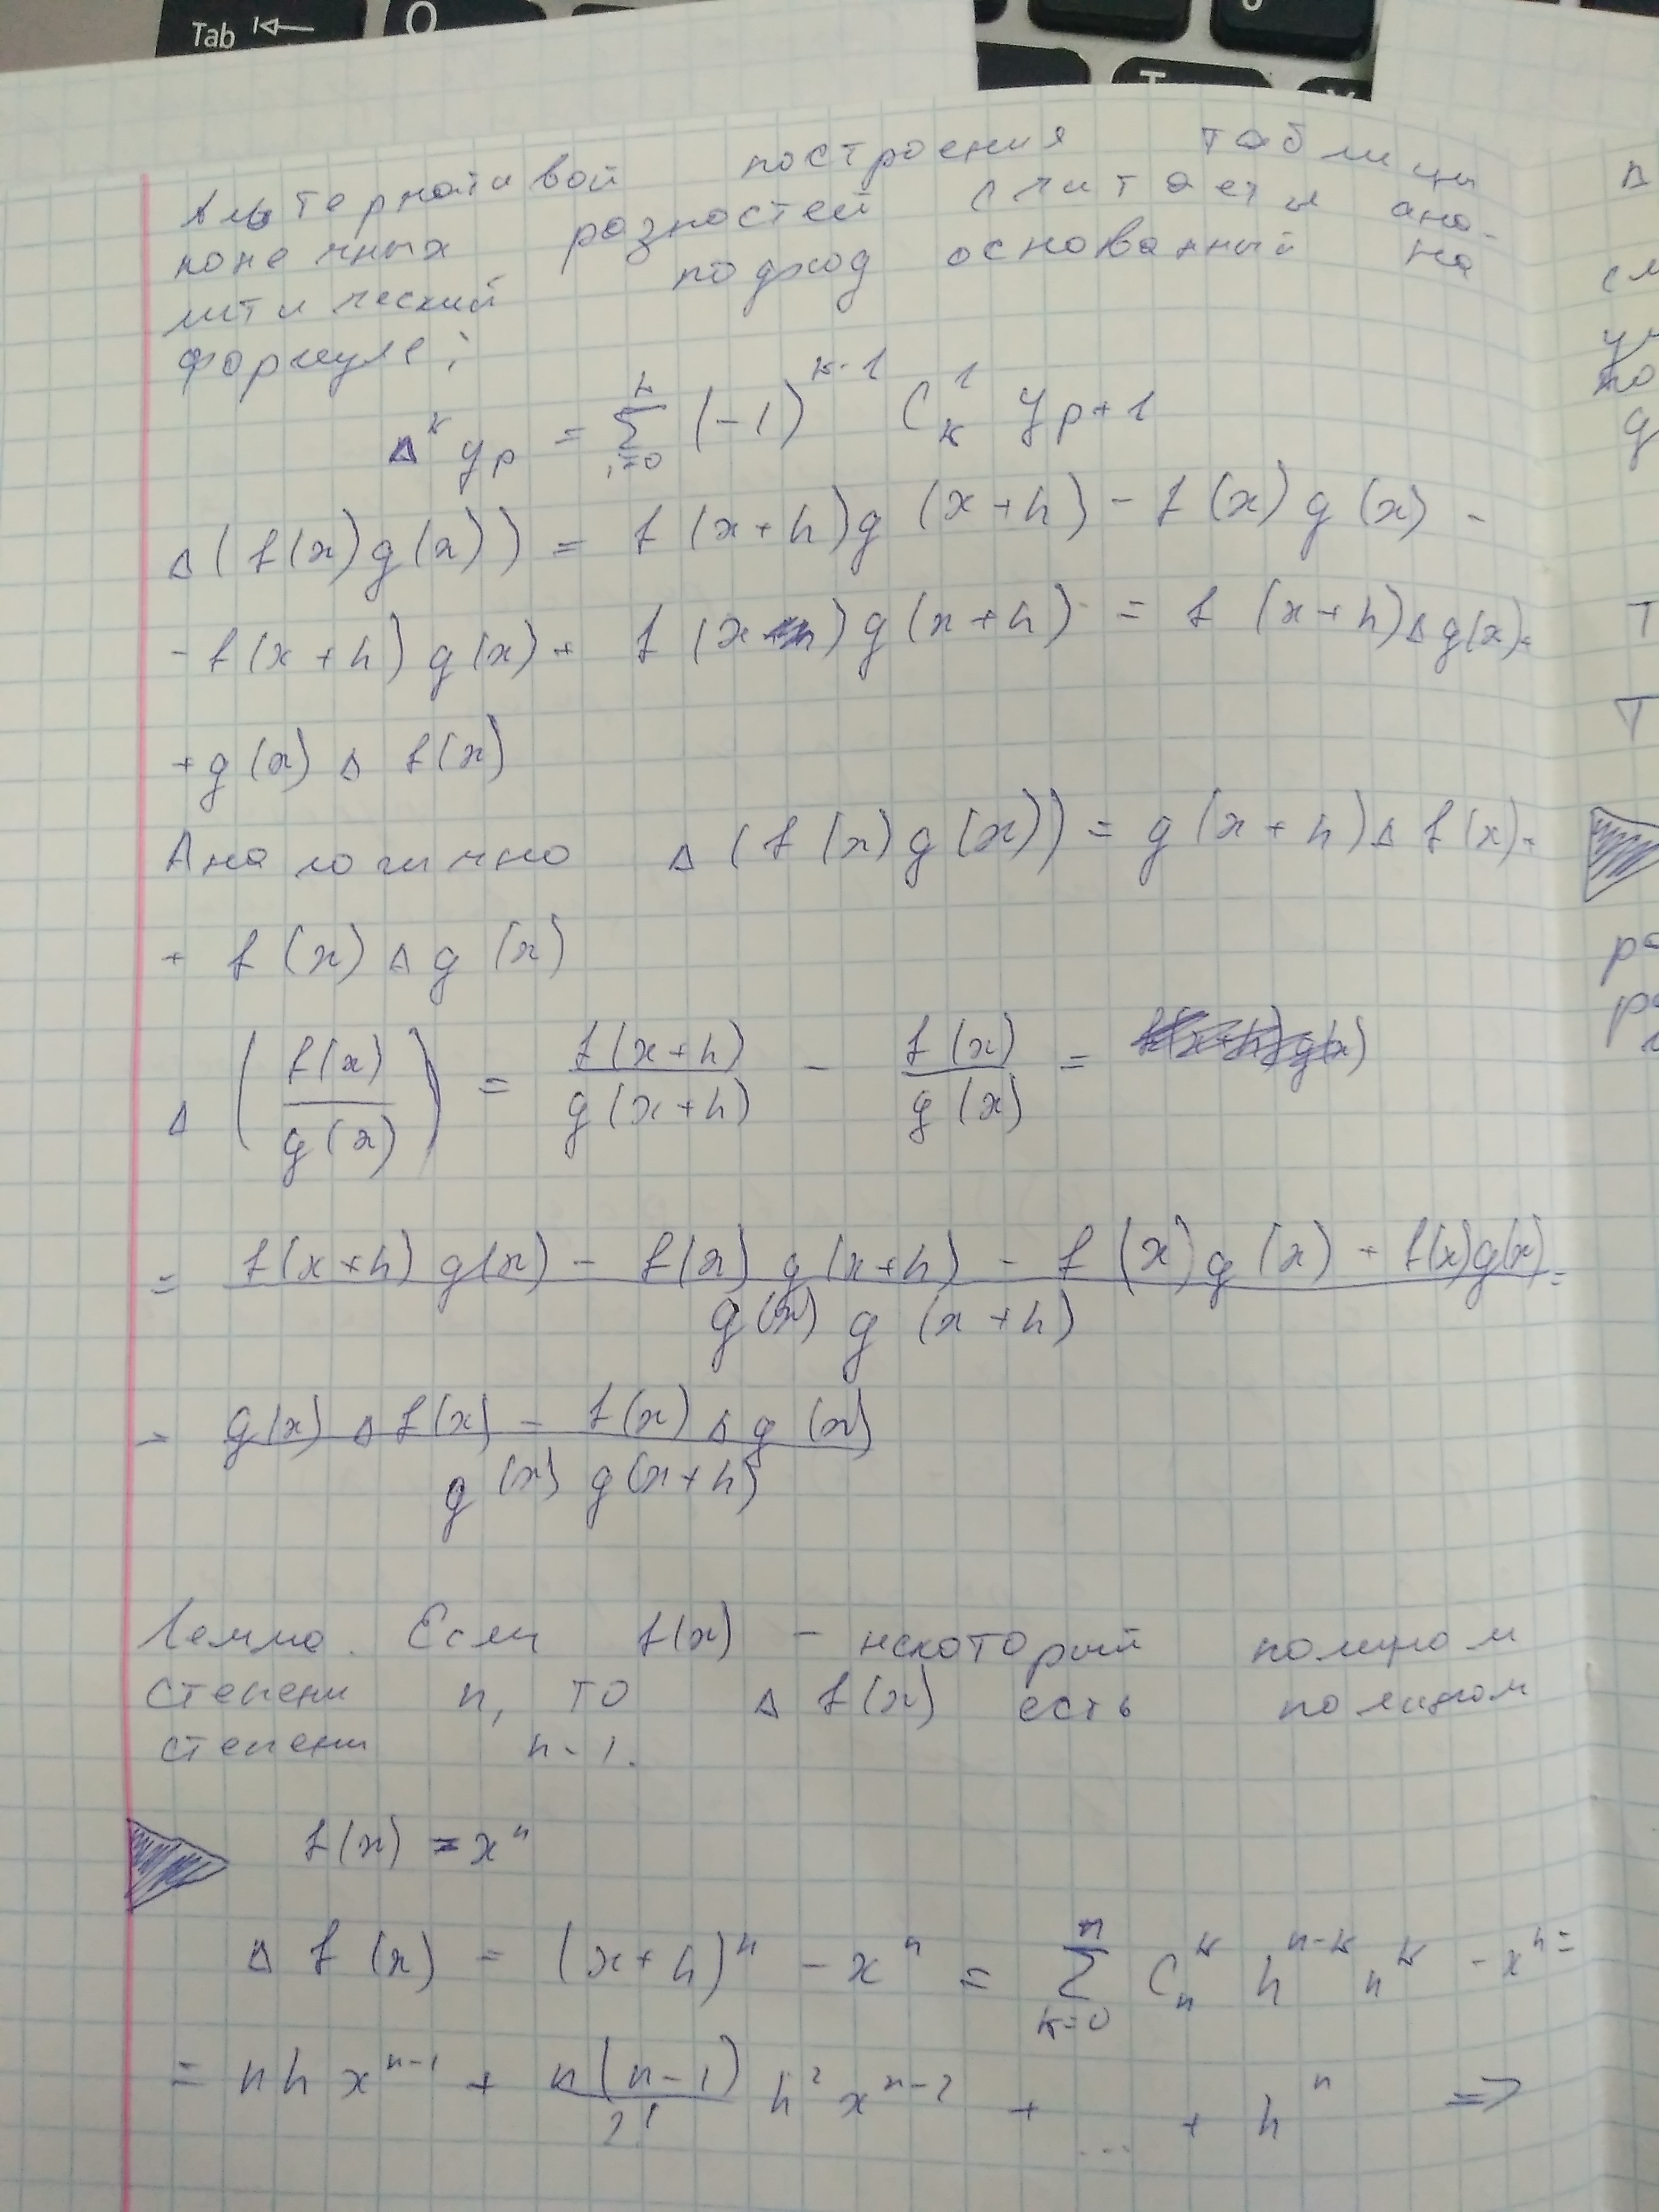 Tab
Альтернативой построения таблицы
конечных разностей считается ана-
литический подход основанный на
формуле:
Δ^k y_p = Σ_{i=0}^{k} (-1)^{k-1} C_k^1 y_{p+1}
Δ(f(x)g(x)) = f(x+h)g(x+h) - f(x)g(x) -
- f(x+h)g(x) + f(x+h)g(x+h) = f(x+h)Δg(x)+
+g(x)Δf(x)
Аналогично Δ(f(x)g(x)) = g(x+h)Δf(x)+
+ f(x)Δg(x)
Δ(f(x)/g(x)) = f(x+h)/g(x+h) - f(x)/g(x) =
= (f(x+h)g(x) - f(x)g(x+h) - f(x)g(x) + f(x)g(x))/(g(x)g(x+h)) =
= (g(x)Δf(x) - f(x)Δg(x))/(g(x)g(x+h))
Лемма. Если f(x) - некоторый полином
степени n, то Δf(x) есть полином
степени n-1.
f(x) = x^n
Δf(x) = (x+h)^n - x^n = Σ_{k=0}^{n} C_n^k h^{n-k} x^k - x^n =
= nhx^{n-1} + n(n-1)/2! h^2 x^{n-2} + ... + h^n =>